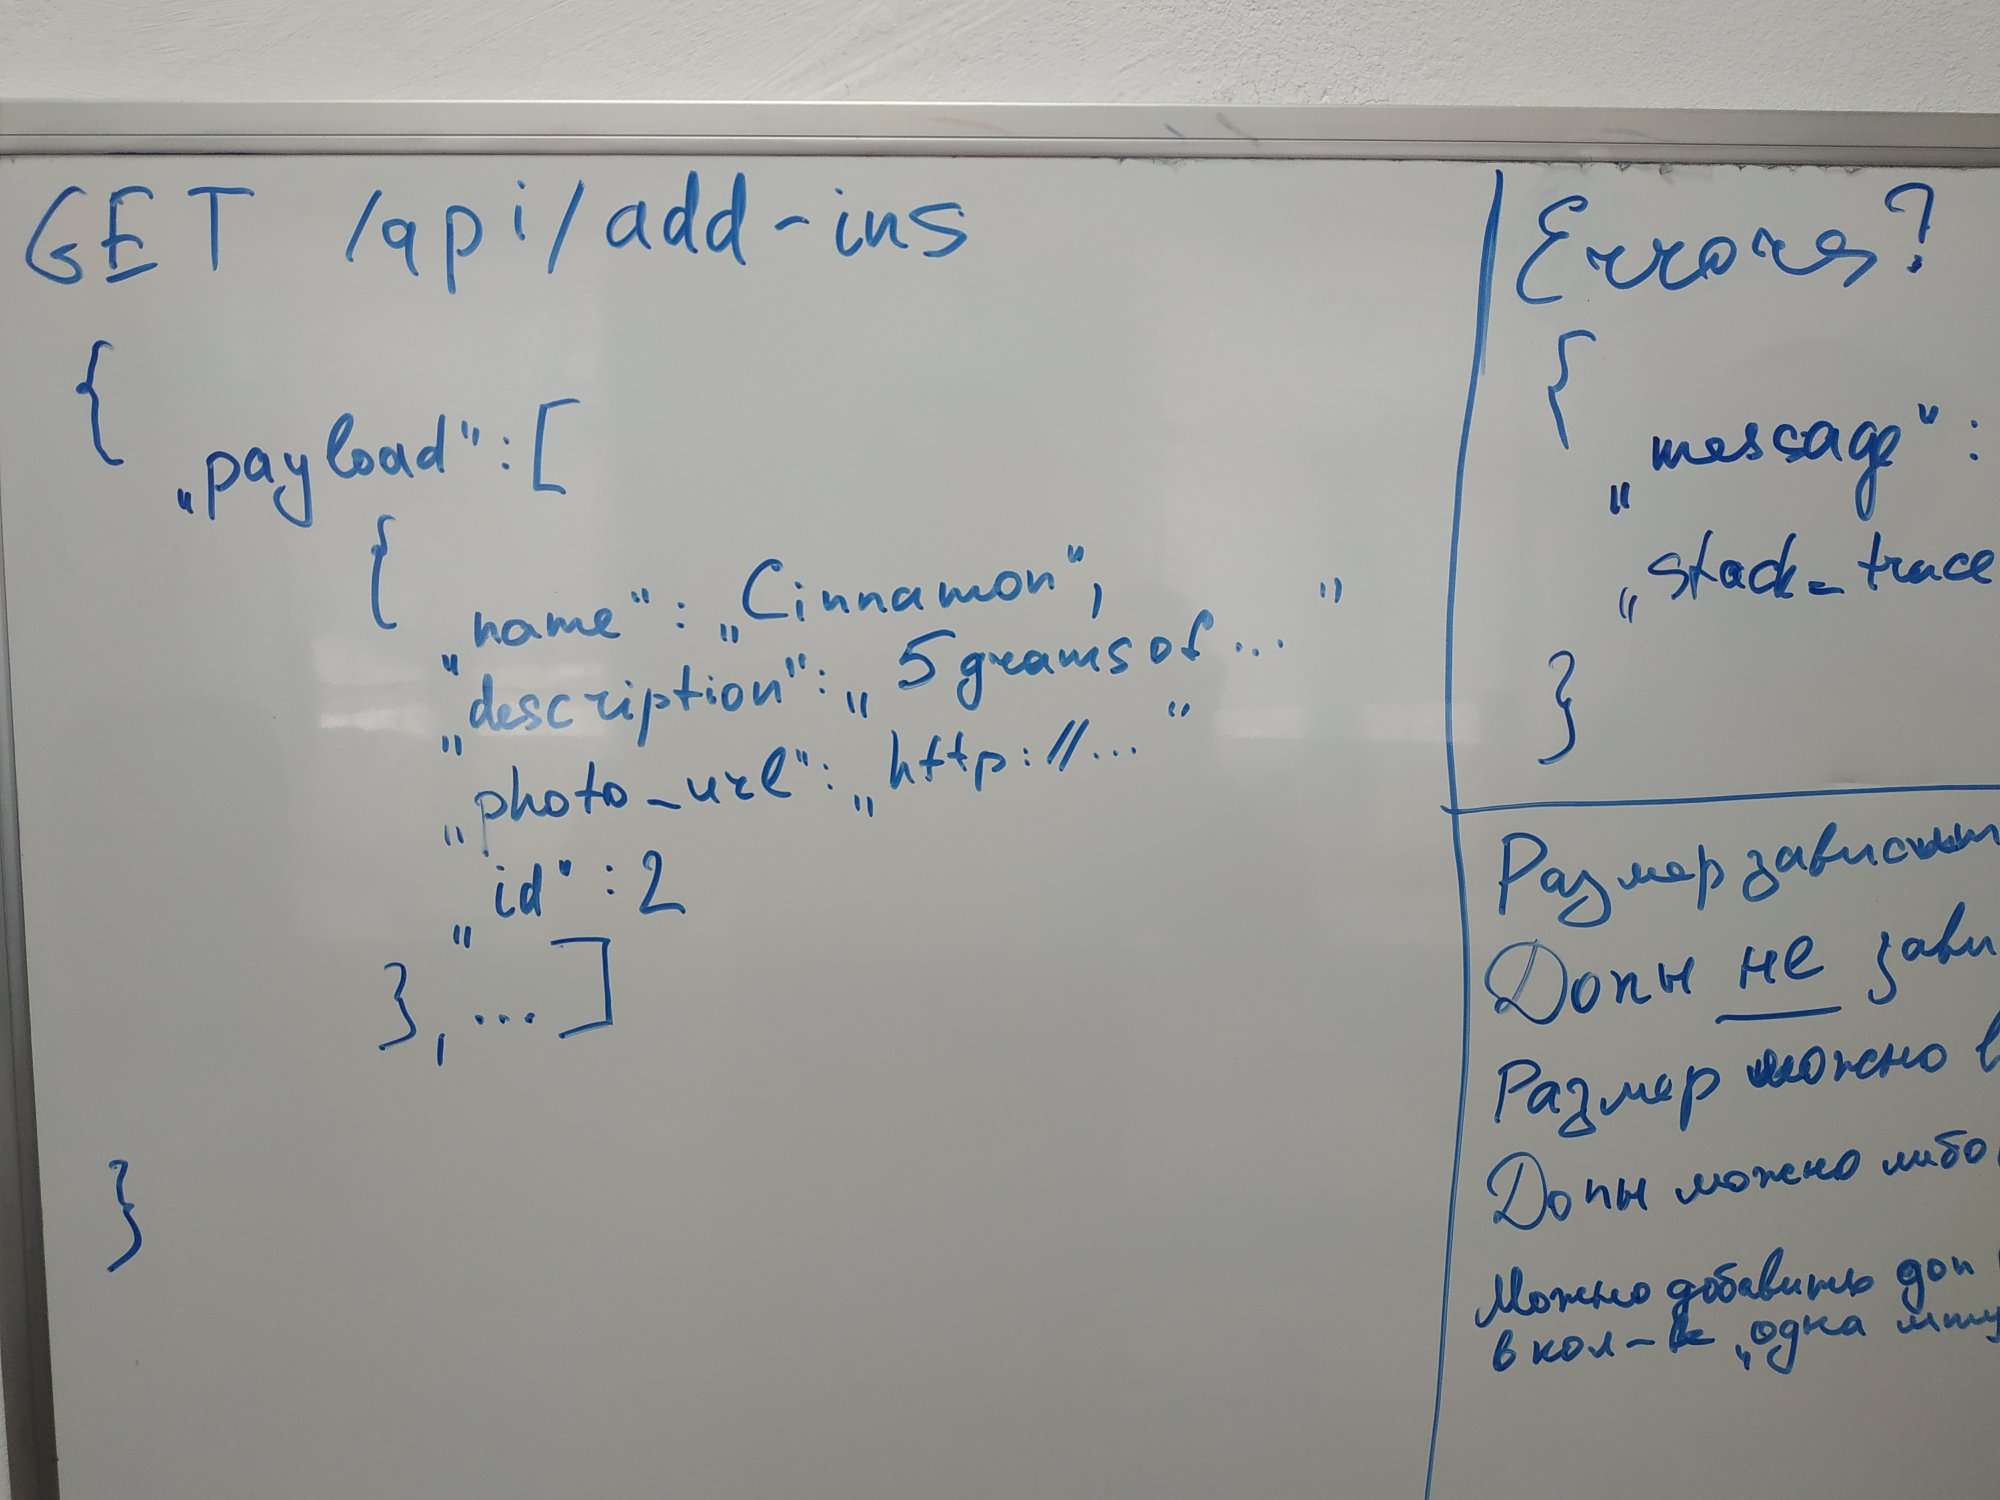 GET /api/add-ins
{
„payload": [
{
„name": „Cinnamon",
„description": „5 grams of ..."
„photo_url": „http://..."
„id": 2
}, ... ]
}
Errors?
{
„message":
„stack_trace
}
Размер зависит
Допы не зави
Размер можно в
Допы можно либо
Можно добавить доп
в кол-ве „одна шту